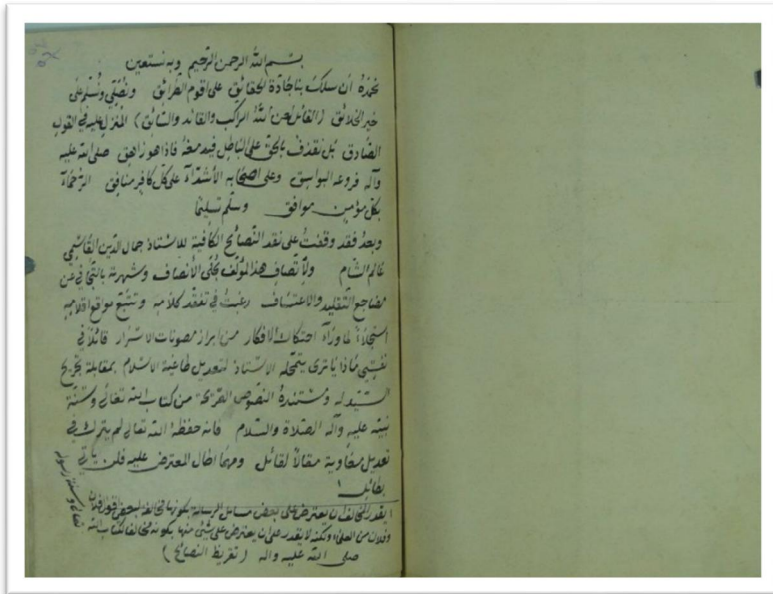 بسم الله الرحمن الرحيم وبه نستعين
نحمده أن سلك بنا جادة الحقائق على أقوم الطرائق ونصلي ونسلم على
خير الخلائق (القائل لعن الله الراكب والقائد والسائق) المنزل عليه في القول
الصادق بل نقذف بالحق على الباطل فيدمغه فاذا هو زاهق صلى الله عليه
وآله فروعه البواسق وعلى اصحابه الأشداء على كل كافر منافق الرحماء
بكل مؤمن موافق وسلم تسليما
وبعد فقد وقفت على نقد النصائح الكافية للاستاذ جمال الدين القاسمي
عالم الشام ولاتصاف هذا المؤلف بحلى الأنصاف وشهرته بالتجافي عن
مضاجع التقليد والاعتساف رغبت في تفقد كلامه وتتبع مواقع اقلامه
استجلاءً لما وراء احتكاك الافكار من ابراز مصونات الاسرار قائلا في
نفسي ماذا يا ترى يتمحله الاستاذ لتعديل طاغية الاسلام بمقابلة تجريح
السيد له ومستنده النصوص الصريحة من كتاب الله تعالى وسنة
نبيه عليه وآله الصلاة والسلام فانه حفظه الله تعالى لم يترك في
تعديل معاوية مقالاً لقائل ومهما اطال المعترض عليه فلن يأتي
بطائل ١
١ يقدر المخالف ان يعترض على بعض مسائل الرسالة بكونها مخالفة لبعض قول فلان
وفلان من العلماء ولكنه لا يقدر على ان يعترض على شيئ منها بكونه مخالفا لكتاب الله
تعالى وسنة رسوله
صلى الله عليه واله (تقريظ النصائح)